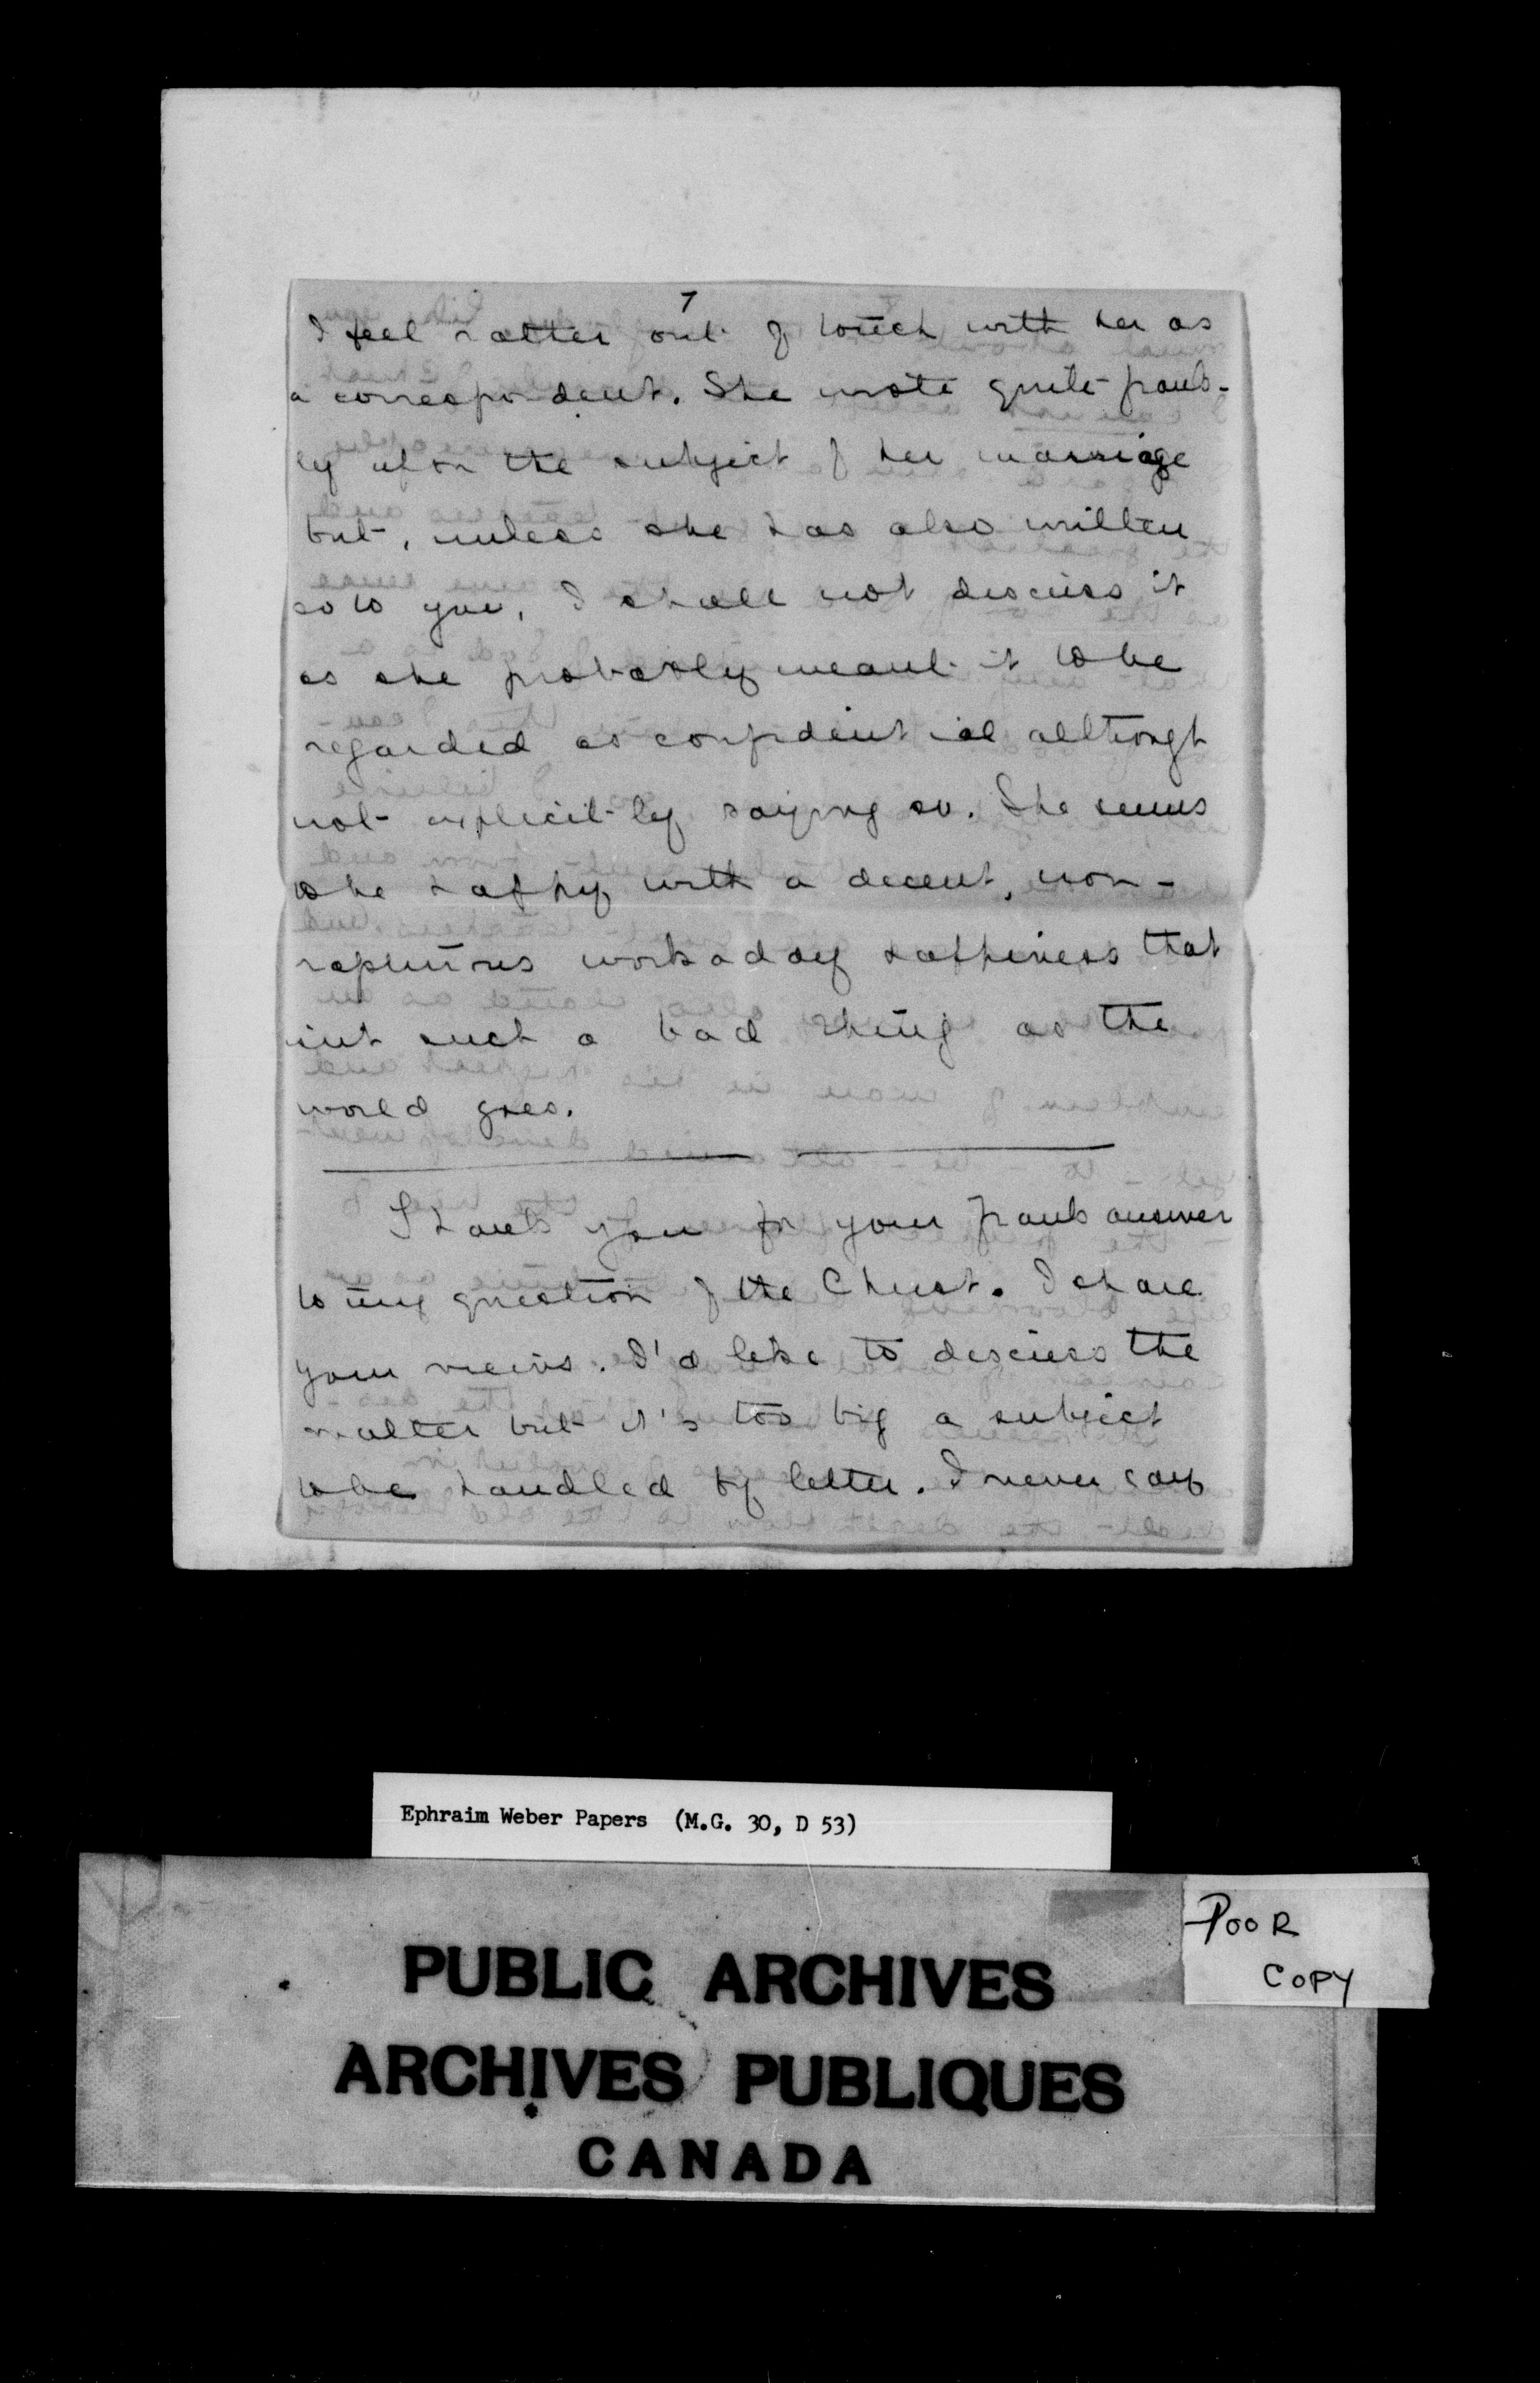 7
I feel rather out of touch with her as
a correspondent. She wrote quite frank-
ly upon the subject of her marriage
but, unless she has also written
so to you, I shall not discuss it
as she probably meant it to be
regarded as confidential although
not explicitly saying so. She seems
to be happy with a decent, non-
rapturous workaday happiness that
isn't such a bad thing as the
world goes.
I thank you for your frank answer
to my question of the Christ. I share
your views. I'd like to discuss the
matter but it's too big a subject
to be handled by letter. I never say
Ephraim Weber Papers (M.G. 30, D 53)
POOR
COPY
PUBLIC ARCHIVES
ARCHIVES PUBLIQUES
CANADA